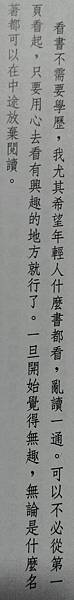 看書不需要學歷，我尤其希望年輕人什麼書都看，亂讀一通。可以不必從第一
頁看起，只要用心去看有興趣的地方就行了。一旦開始覺得無趣，無論是什麼名
著都可以在中途放棄閱讀。